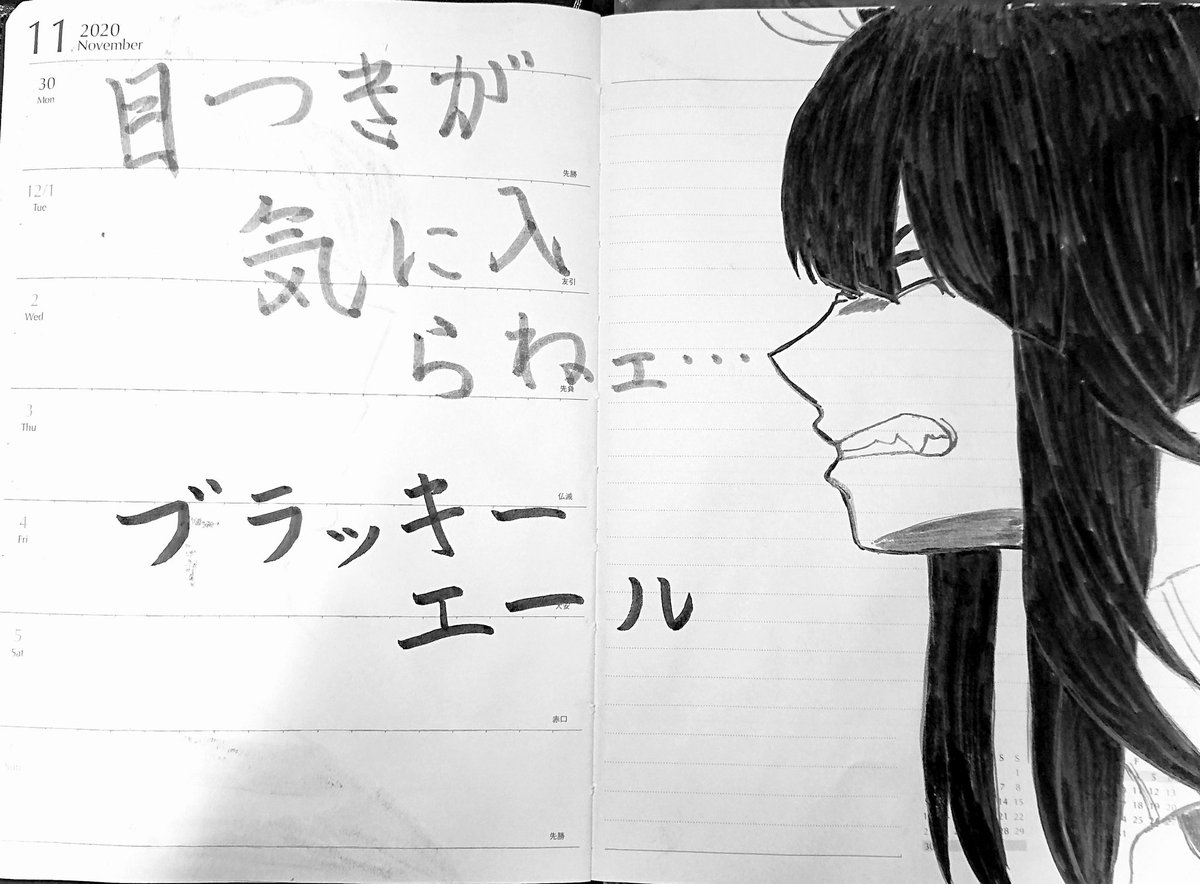 11 2020 November
30 Mon
目つきが
先勝
12/1 Tue
気に入
友引
2 Wed
らねェ…
先負
3 Thu
ブラッキー
仏滅
4 Fri
エール
大安
5 Sat
赤口
Sun
先勝